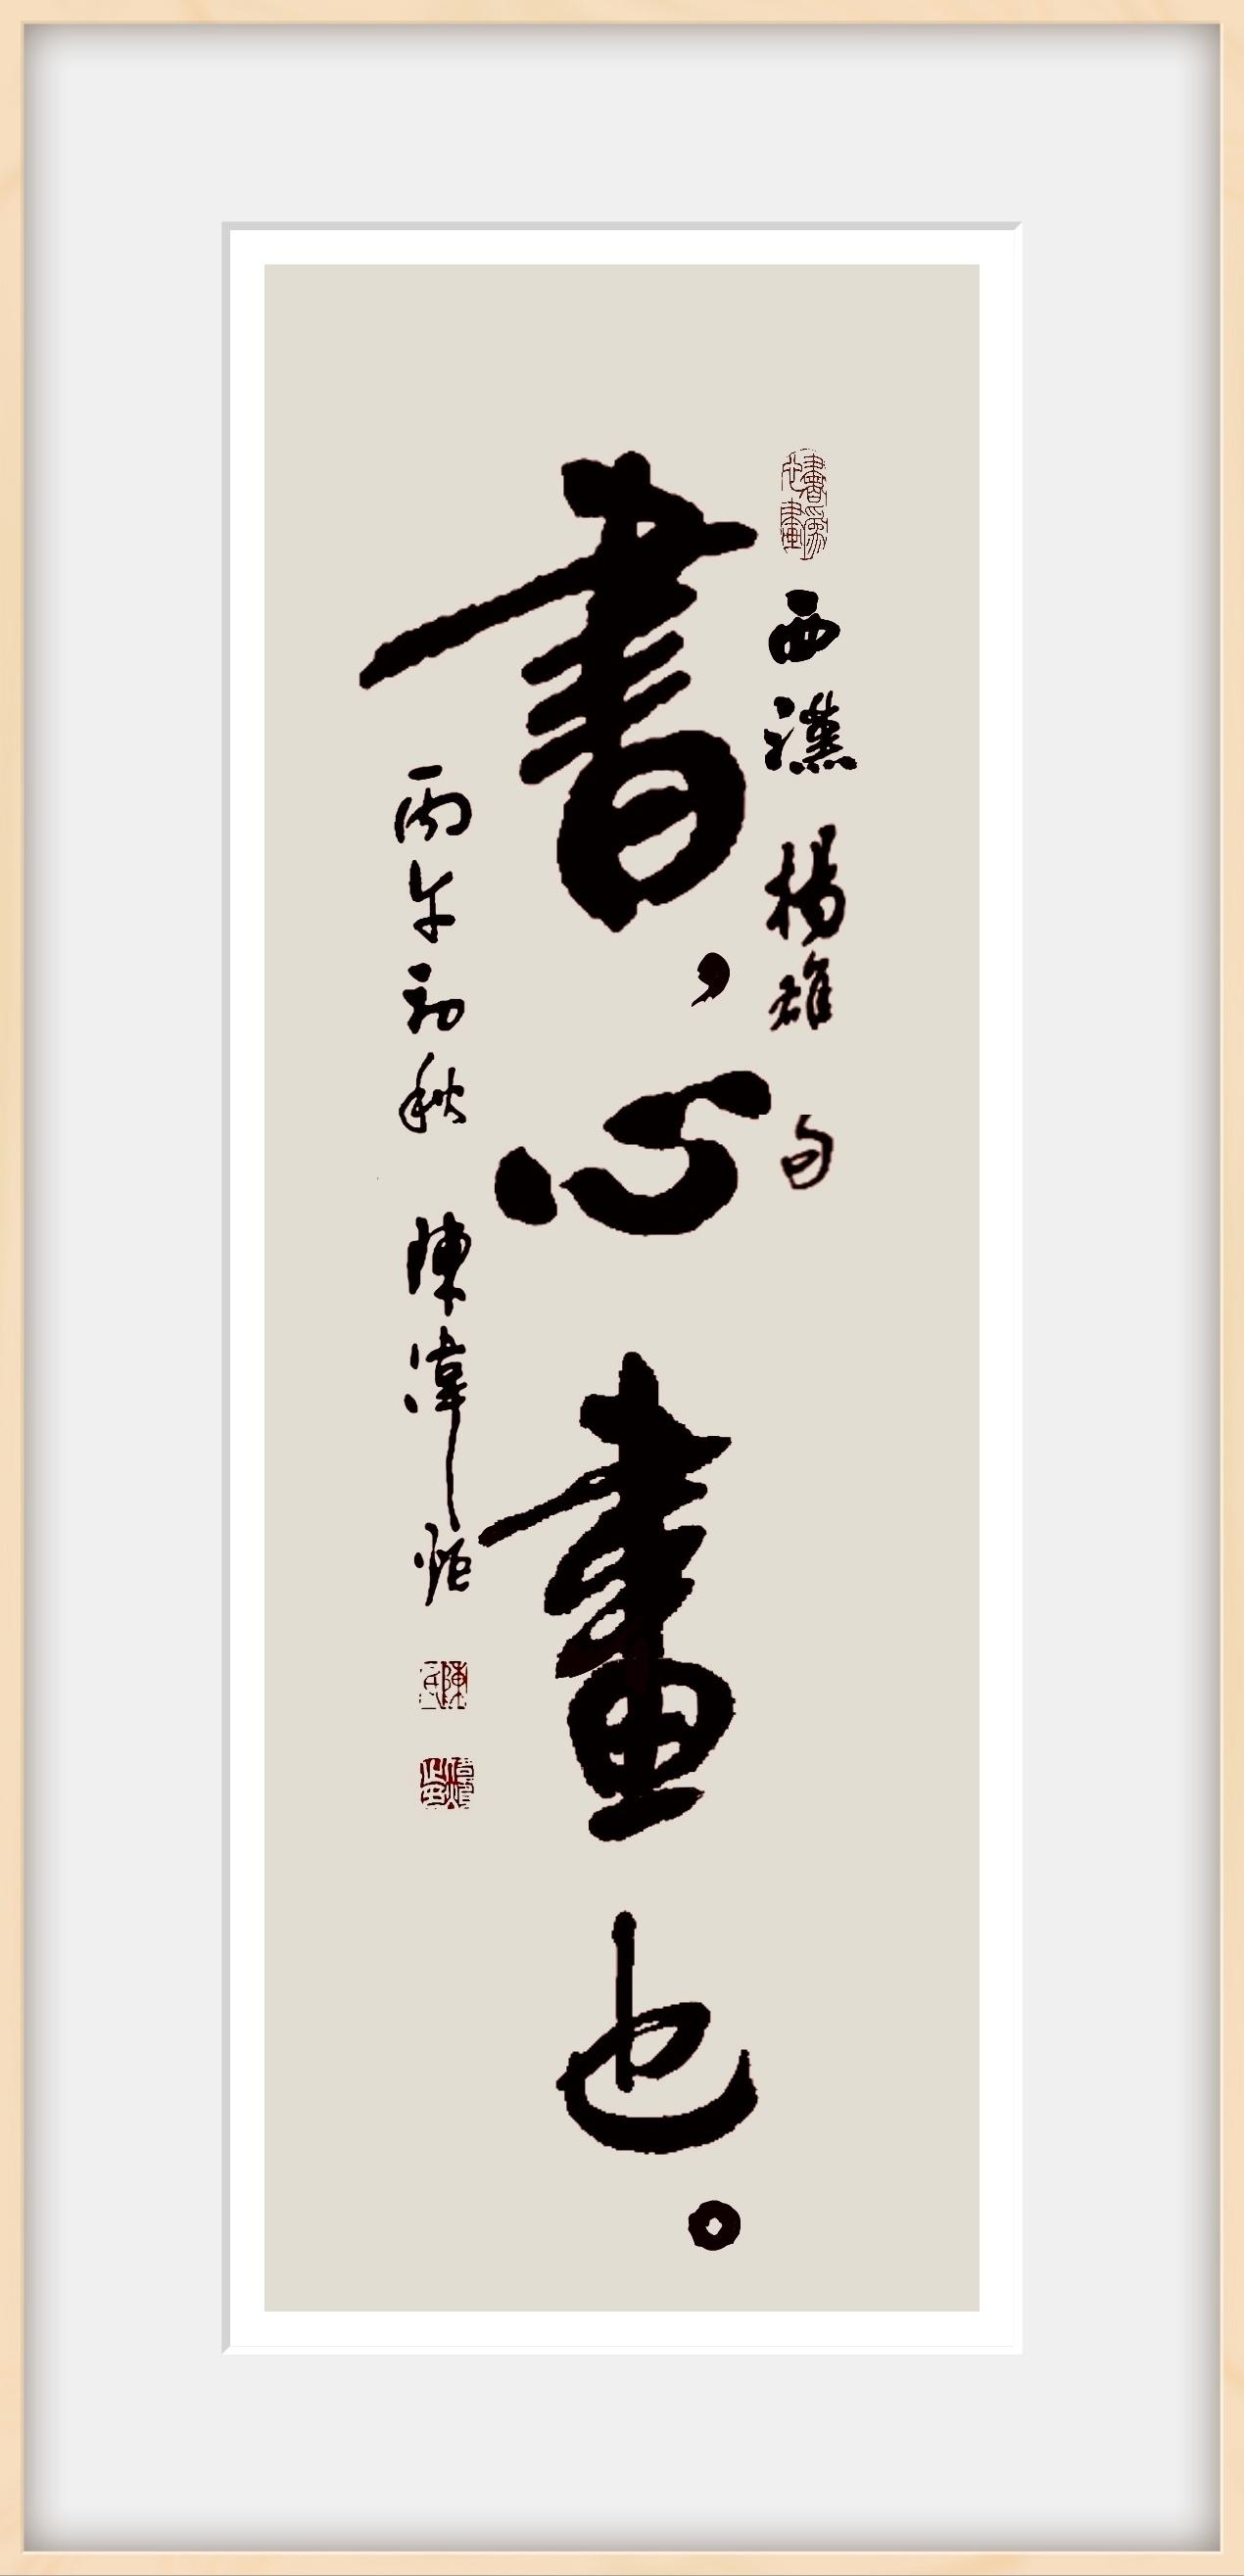 西漢 楊雄 句
書，心畫也。
丙午初秋 陳偉炬